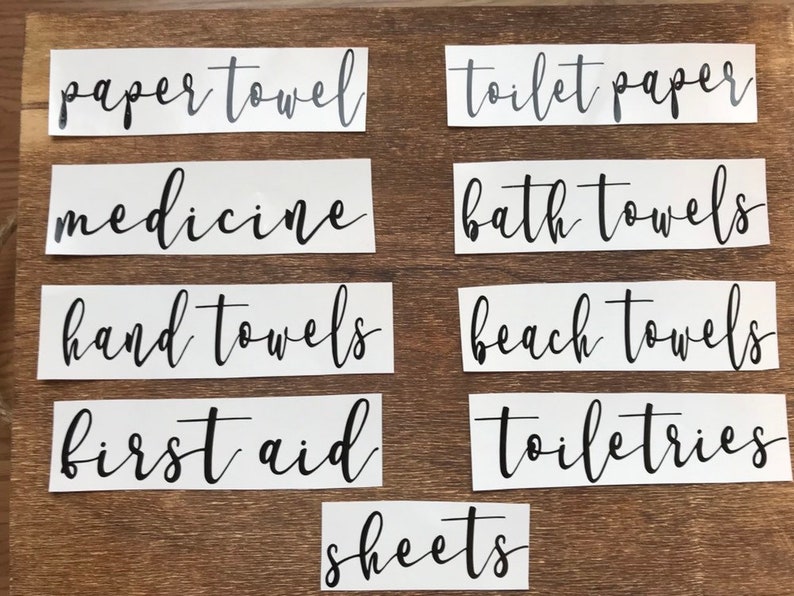 paper towel
toilet paper
medicine
bath towels
hand towels
beach towels
first aid
toiletries
sheets